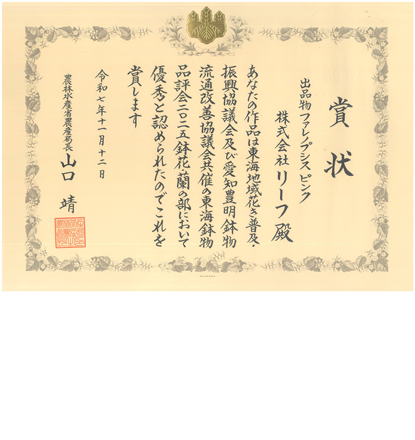 賞状
出品物 ファレノプシス ピンク
株式会社 リーフ 殿
あなたの作品は東海地域花き普及・
振興協議会及び愛知豊明鉢物
流通改善協議会共催の東海鉢物
品評会二〇二五鉢花・蘭の部において
優秀と認められたのでこれを
賞します
令和七年十一月十二日
農林水産省農産局長 山口 靖